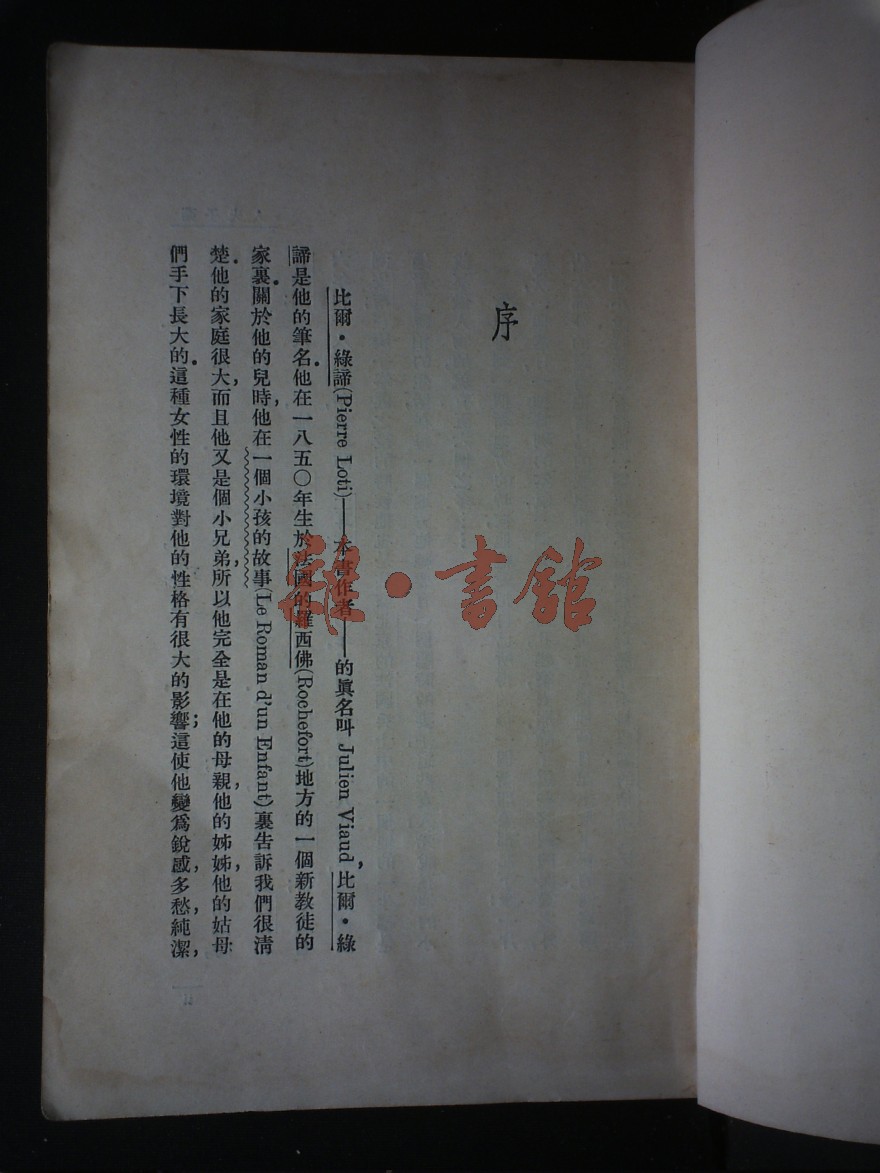 序
比爾·綠諦(Pierre Loti)——本書作者——的眞名叫 Julien Viaud，比爾·綠
諦是他的筆名。他在一八五〇年生於法國的羅西佛(Rochefort)地方的一個新教徒的
家裏。關於他的兒時，他在一個小孩的故事(Le Roman d'un Enfant)裏告訴我們很淸
楚。他的家庭很大，而且他又是個小兄弟，所以他完全是在他的母親，他的姊姊，他的姑母
們手下長大的。這種女性的環境對他的性格有很大的影響；這使他變爲銳感，多愁，純潔，
雜·書館